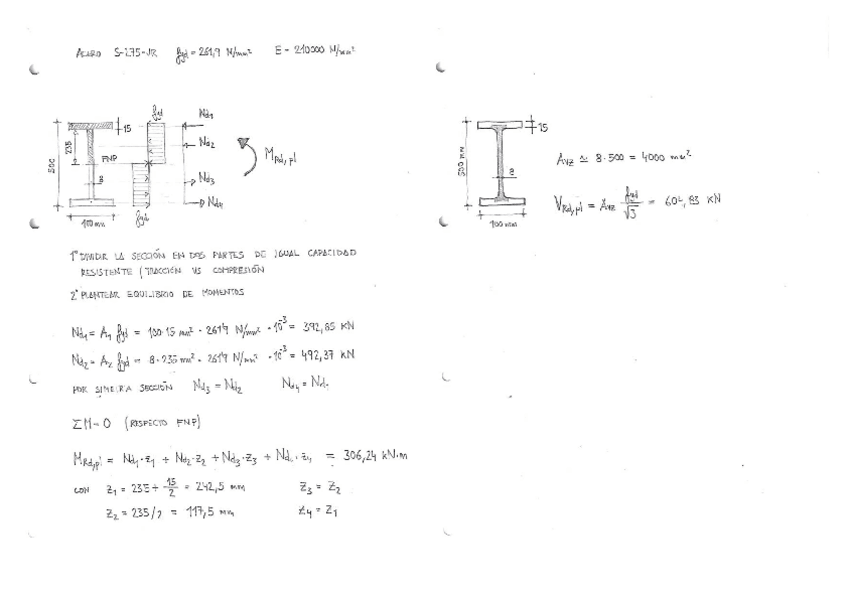 ACERO S-275-JR fyd = 261,9 N/mm² E = 210000 N/mm²
fyd
Nd1
15
Nd2
235
500
FNP
MRd,pl
8
Nd3
Nd4
fyd
100 mm
1º DIVIDIR LA SECCIÓN EN DOS PARTES DE IGUAL CAPACIDAD
RESISTENTE (TRACCIÓN VS COMPRESIÓN
2º PLANTEAR EQUILIBRIO DE MOMENTOS
Nd1 = A1 fyd = 100·15 mm² · 261,9 N/mm² · 10⁻³ = 392,85 kN
Nd2 = A2 fyd = 8·235 mm² · 261,9 N/mm² · 10⁻³ = 492,37 kN
POR SIMETRÍA SECCIÓN Nd3 = Nd2 Nd4 = Nd1
ΣM = 0 (RESPECTO FNP)
MRd,pl = Nd1·z1 + Nd2·z2 + Nd3·z3 + Nd4·z4 = 306,24 kN·m
CON z1 = 235 + 15/2 = 242,5 mm z3 = z2
z2 = 235/2 = 117,5 mm z4 = z1
15
500 mm
8
100 mm
Avz ≃ 8·500 = 4000 mm²
VRd,pl = Avz fyd/√3 = 604,83 kN